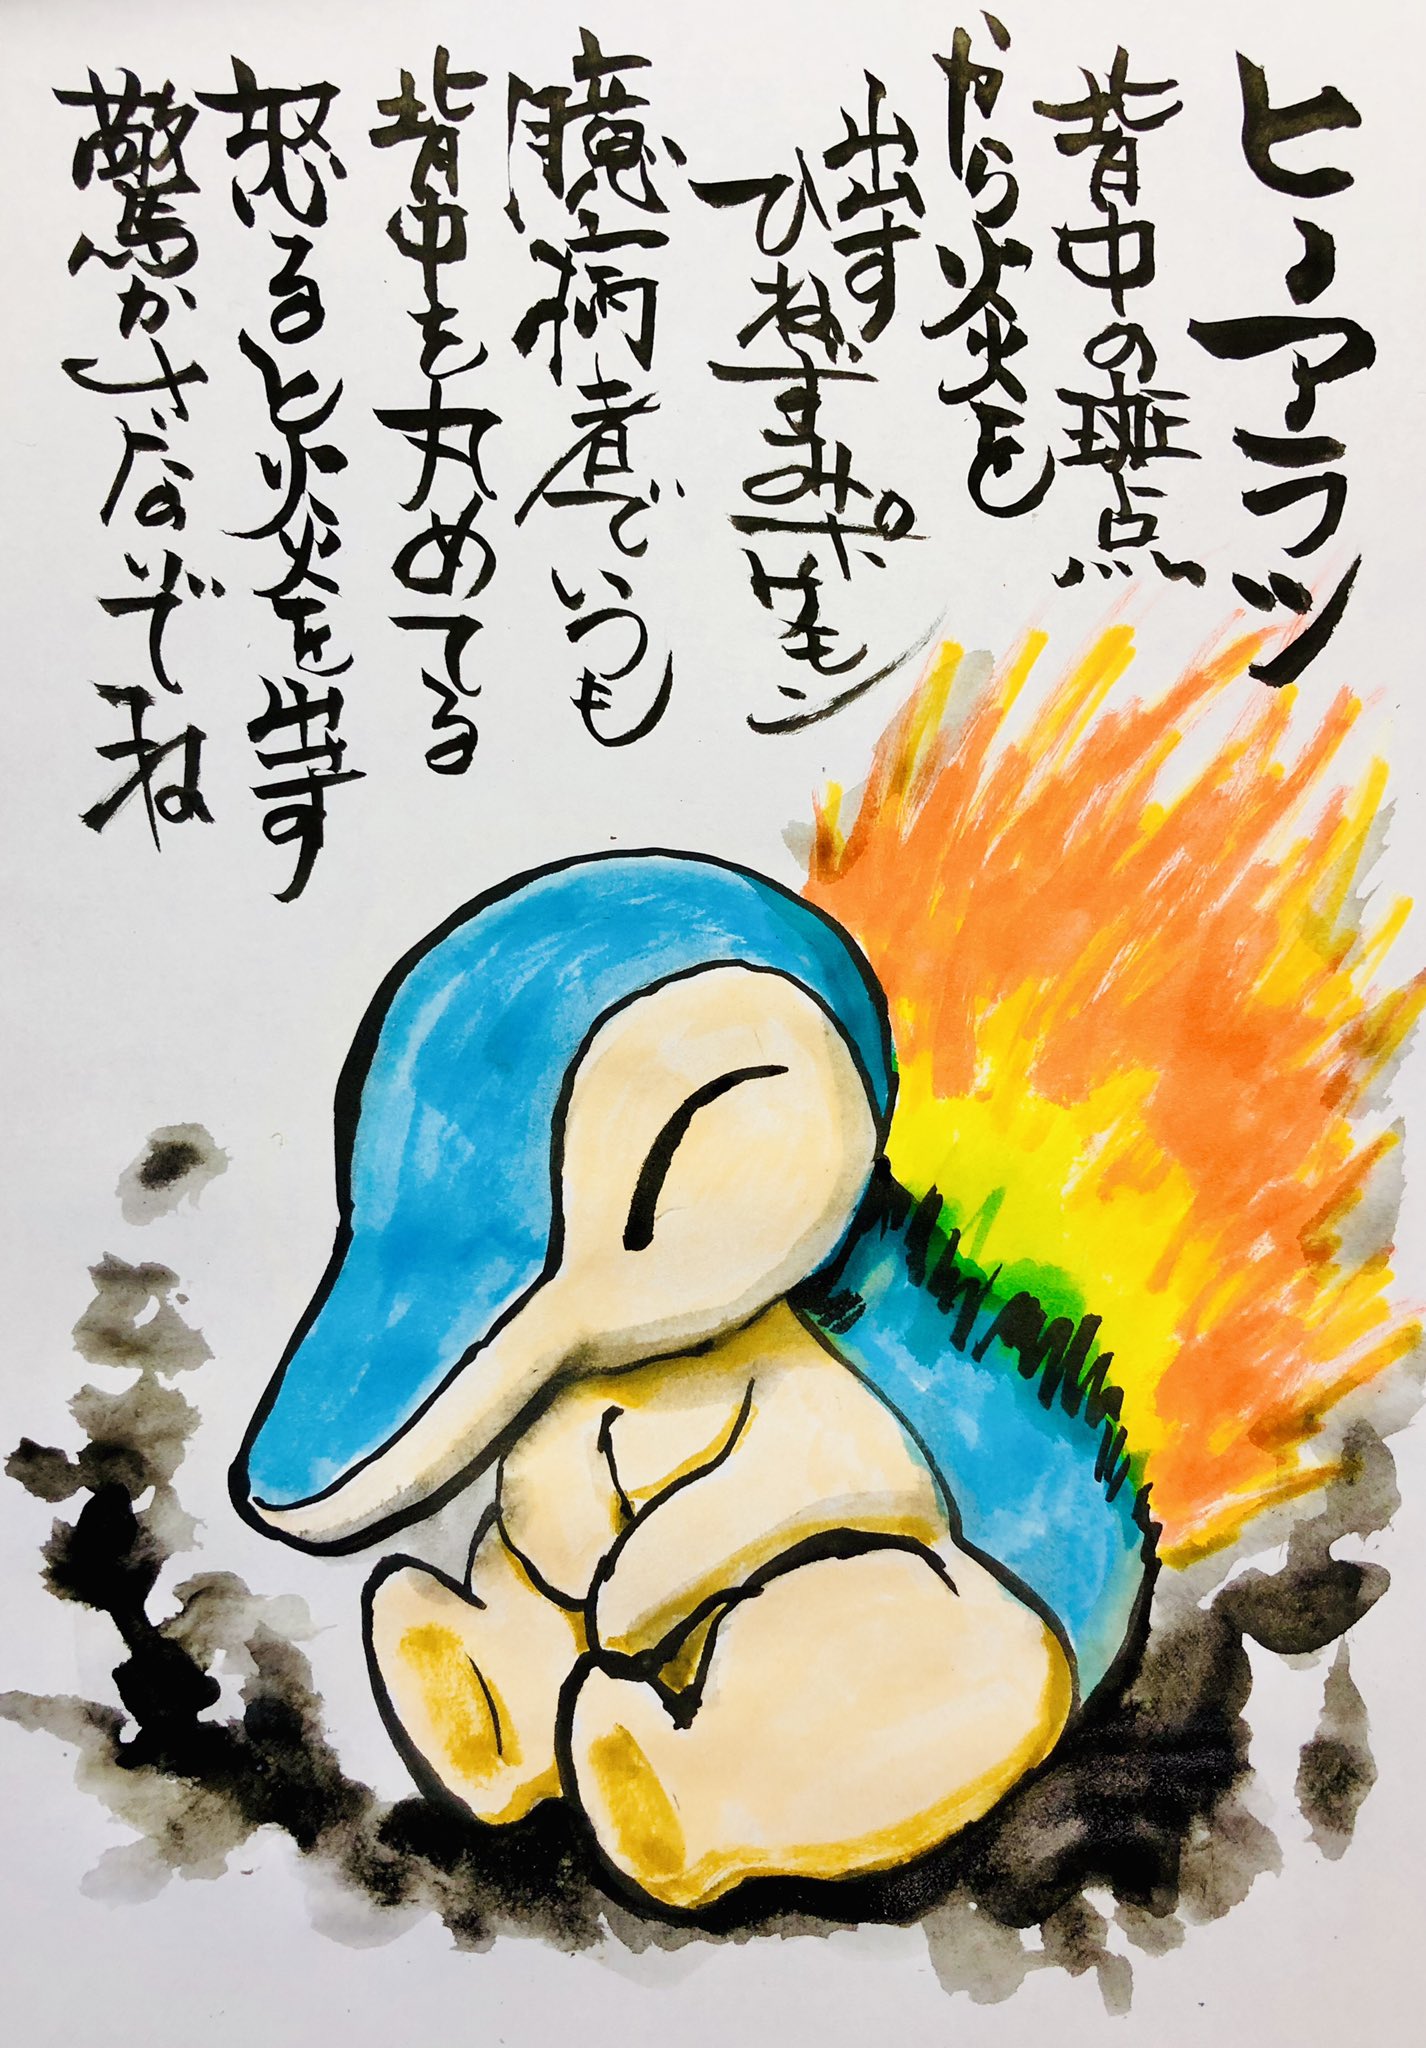 ヒノアラシ
背中の斑点
から火炎を
出す
ひねずみポケモン
臆病者でいつも
背中を丸めてる
怒ると火炎を出す
驚かさないでね